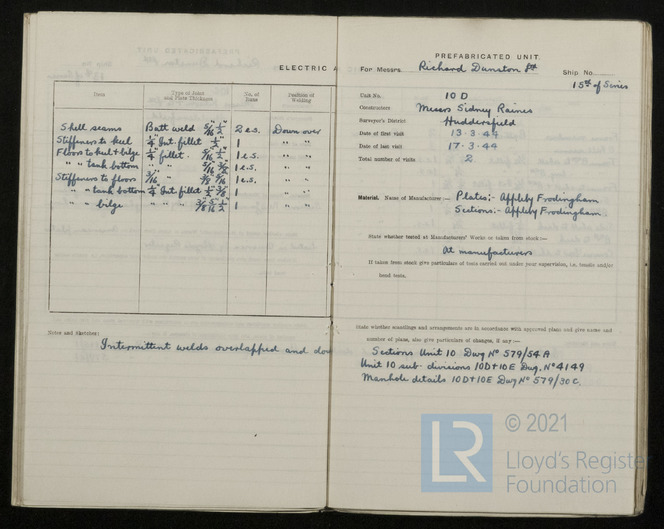 ELECTRIC A
Item
Type of Joint and Plate Thickness
No. of Runs
Position of Welding
Shell seams Butt weld 5/16" 1/2" 2 e.s. Down over
Stiffeners to keel 1/4" Int. fillet 1/2" 1 " "
Floors to keel + bilge 1/4" fillet 5/16" 1/2" 1 e.s. " "
" " tank bottom " " 5/16 1 e.s. " "
Stiffeners to floors 3/16 " " 1 e.s.
" " tank bottom 1/4" Int fillet 1 " "
" " bilge " " " 3/8 5/16 1/2" 1 " "
Notes and sketches:
Intermittent welds overlapped and dou
PREFABRICATED UNIT.
For Messrs. Richard Dunston Ltd
Ship No.
15th of Series
Unit No. 10 D
Constructors Messrs Sidney Raines
Surveyor's District Huddersfield
Date of first visit 13.3.44
Date of last visit 17.3.44
Total number of visits 2
Material. Name of Manufacturer:— Plates: Appleby Frodingham
Sections:- Appleby Frodingham
State whether tested at Manufacturers' Works or taken from stock:—
At manufacturers
If taken from stock give particulars of tests carried out under your supervision, i.e. tensile and/or
bend tests.
State whether scantlings and arrangements are in accordance with approved plans and give name and
number of plans, also give particulars of changes, if any:—
Sections Unit 10 Dwg No 579/54A
Unit 10 sub-divisions 10D+10E Dwg. No 4149
Manhole details 10D+10E Dwg No 579/30C.
LR
© 2021
Lloyd's Register
Foundation